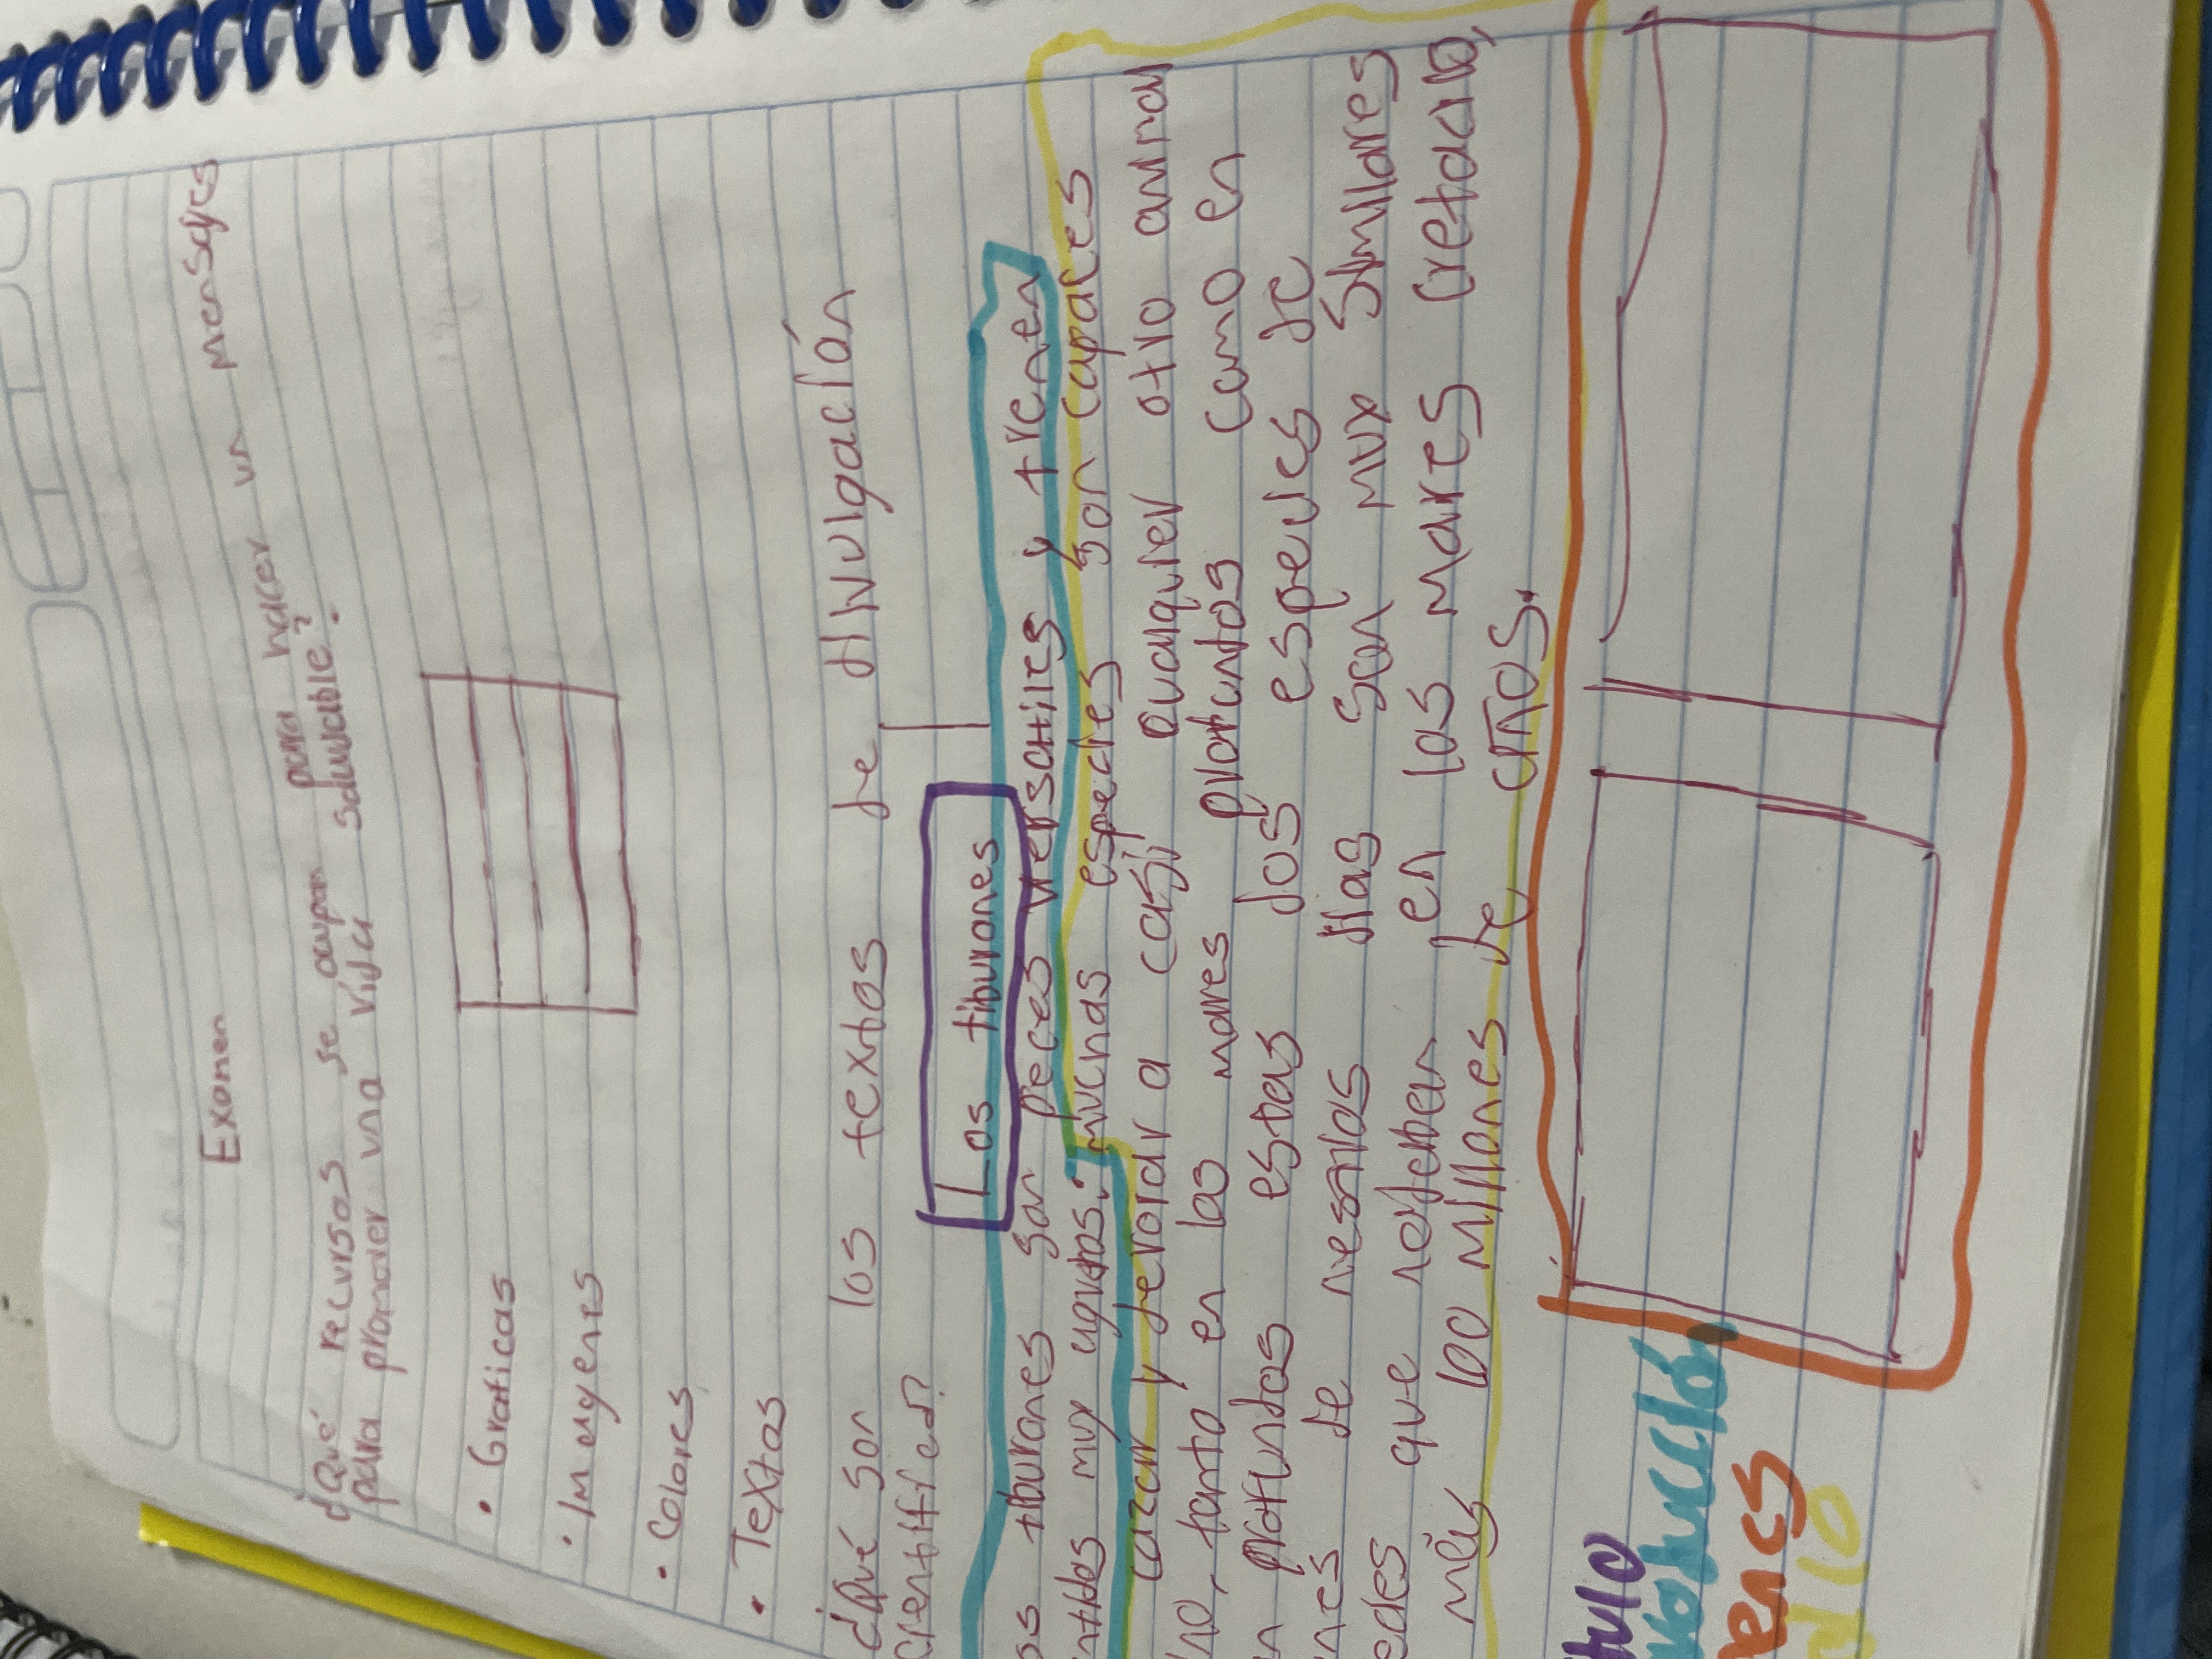 Examen
¿Qué recursos se ocupan para hacer un mensajes
para promover una vida saludable?
• Graficas
• Imagenes
• Colores
• Textos
¿Qué son los textos de divulgación
cientifica?
Los tiburones
os tiburones son peces versatiles y tienen
ntidos muy agudos. muchas especies son capaces
cazar y devorar a casi cualquier otro animal
no, tanto en los mares protundos como en
profundos estas dos especies de
nes de nesnias dias son mux similares
edes que rodeban en los mares cretacio,
más 100 millones de años.
tulo
ens